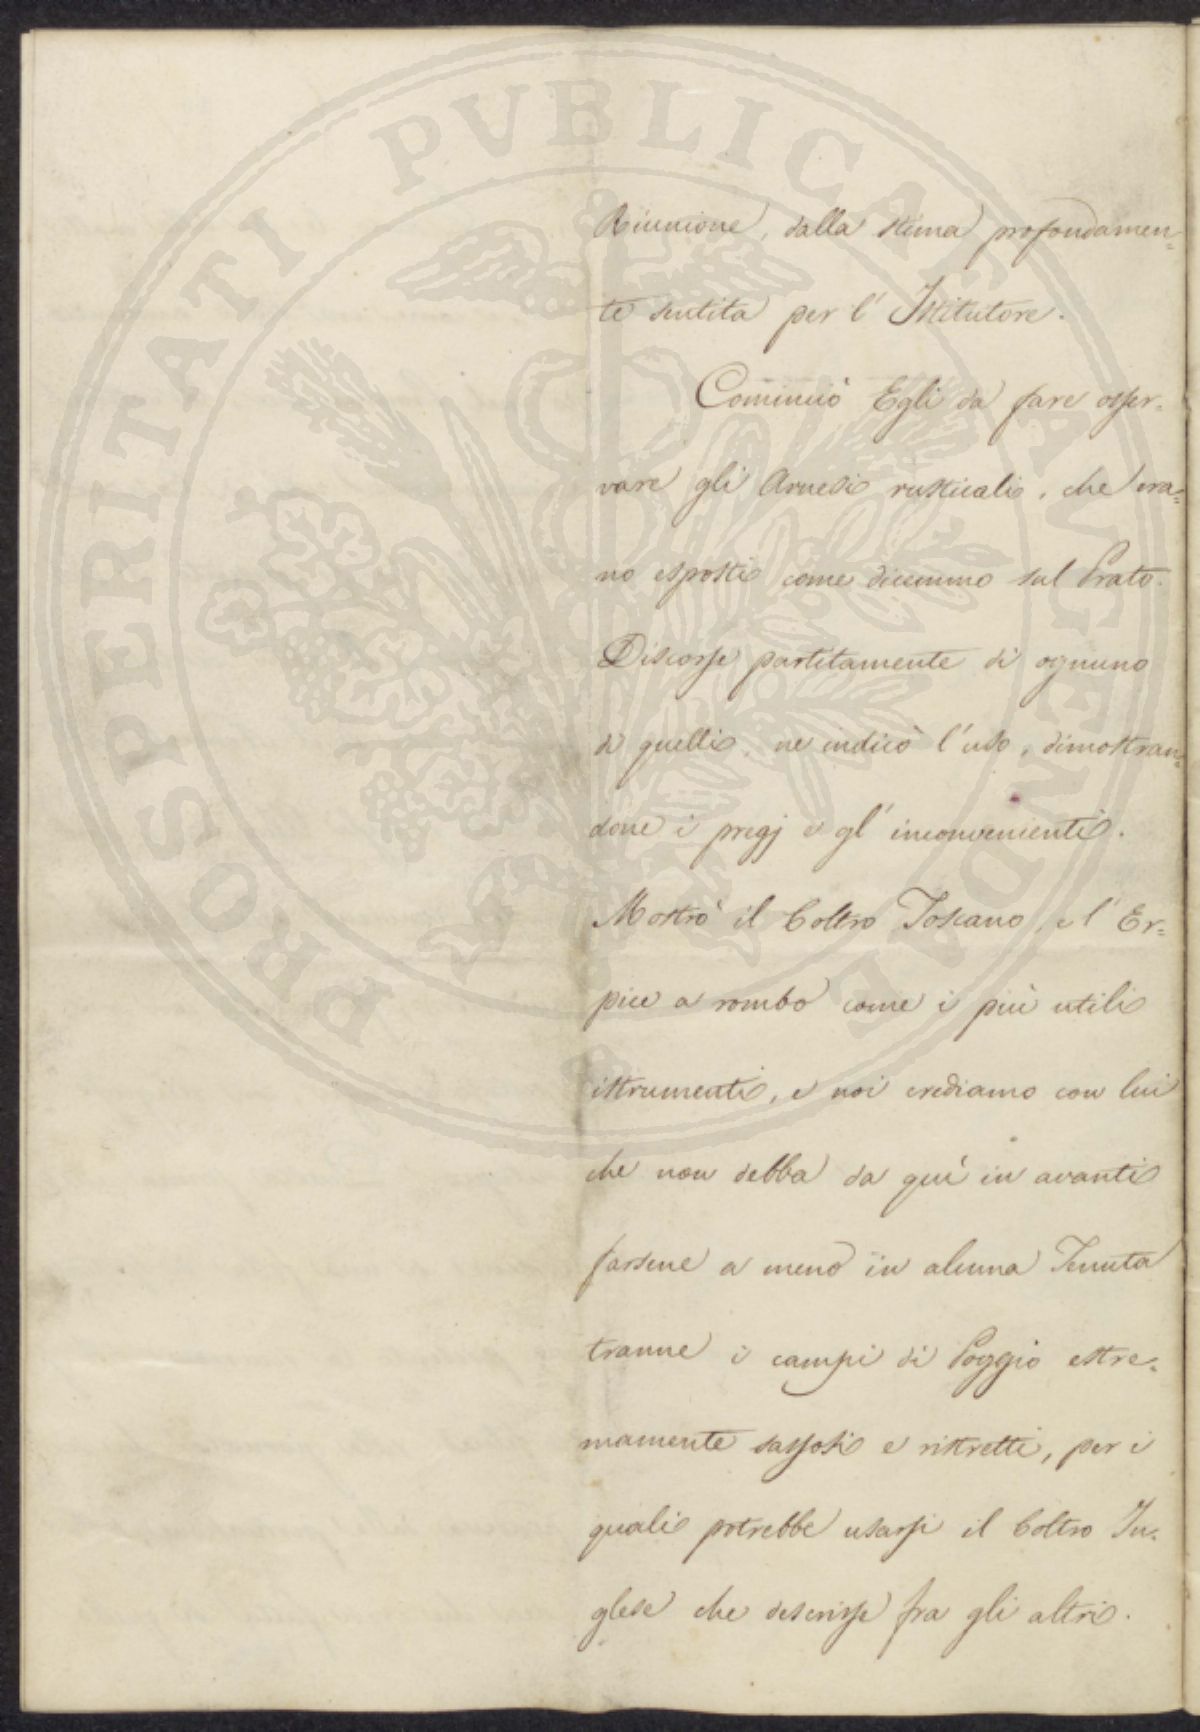 PROSPERITATI PVBLICAE AVGENDAE
Riunione, dalla stima profondamen=
te sentita per l' Istitutore.
Cominciò Egli da fare osser=
vare gli Arnesi rusticali, che era=
no esposti come dicemmo sul Prato.
Discorse partitamente di ognuno
di quelli, ne indicò l'uso, dimostran=
done i pregj e gl' inconvenienti.
Mostrò il Coltro Toscano, e l' Er=
pice a rombo come i più utili
istrumenti, e noi crediamo con lui
che non debba da quì in avanti
farsene a meno in alcuna Tenuta
tranne i campi di Poggio estre=
mamente sassosi e ristretti, per i
quali potrebbe usarsi il Coltro In=
glese che descrisse fra gli altri.